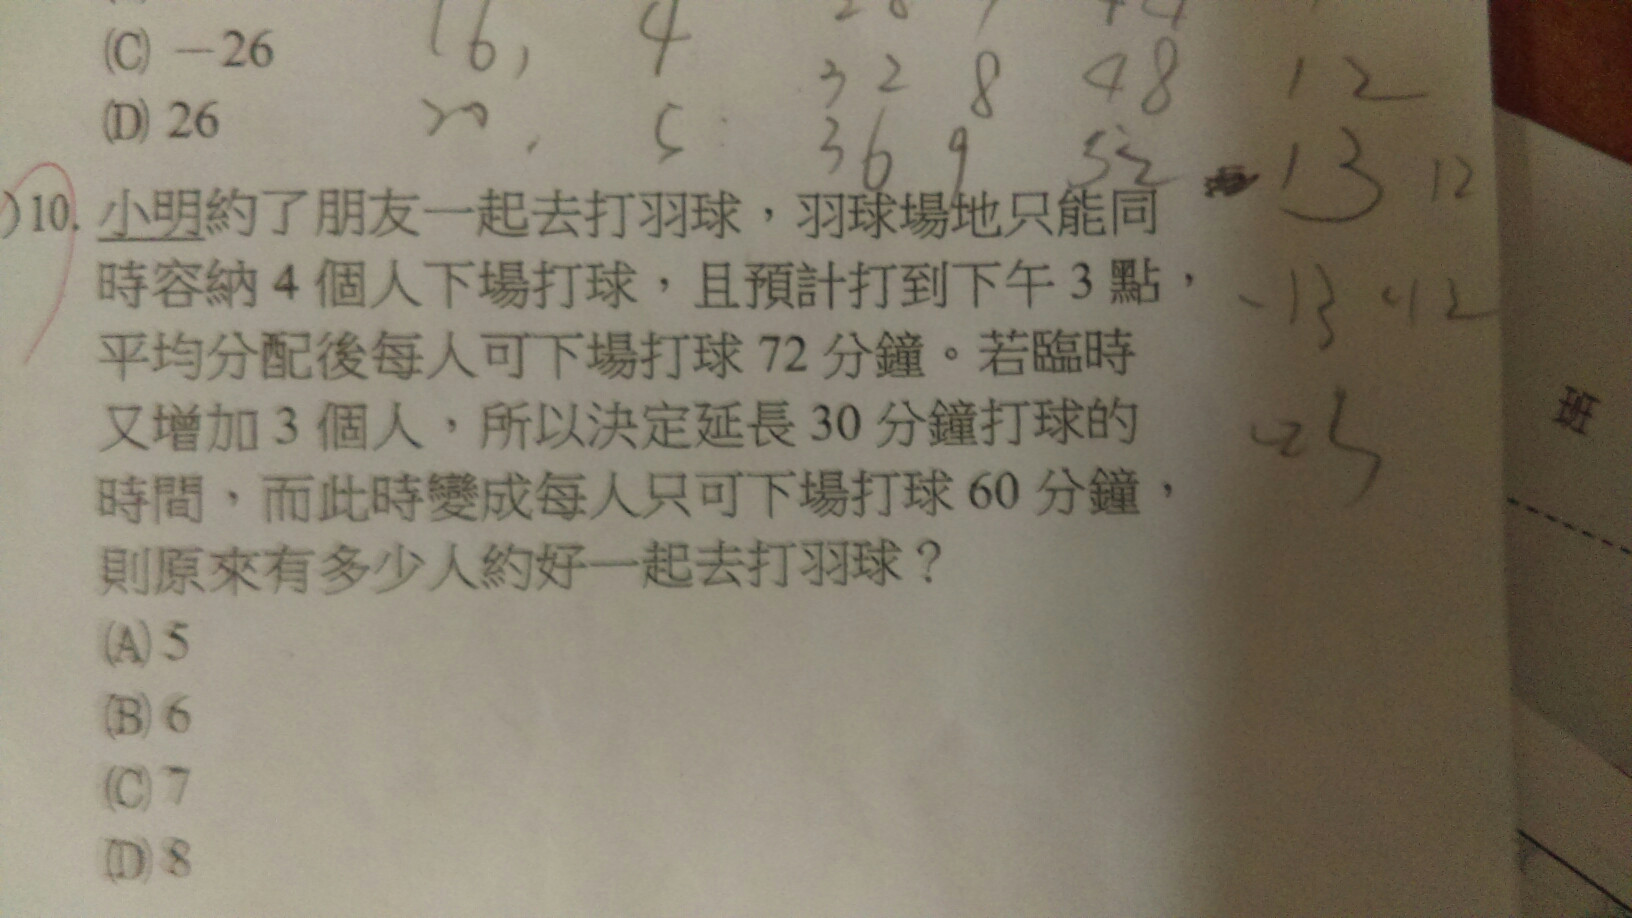 (C) －26
16, 4
(D) 26
32 8 48 12
20, 5
36 9 52 13 12
)10. 小明約了朋友一起去打羽球，羽球場地只能同
時容納 4 個人下場打球，且預計打到下午 3 點，
-13 -12
平均分配後每人可下場打球 72 分鐘。若臨時
又增加 3 個人，所以決定延長 30 分鐘打球的
-25
時間，而此時變成每人只可下場打球 60 分鐘，
則原來有多少人約好一起去打羽球？
(A) 5
(B) 6
(C) 7
(D) 8
班